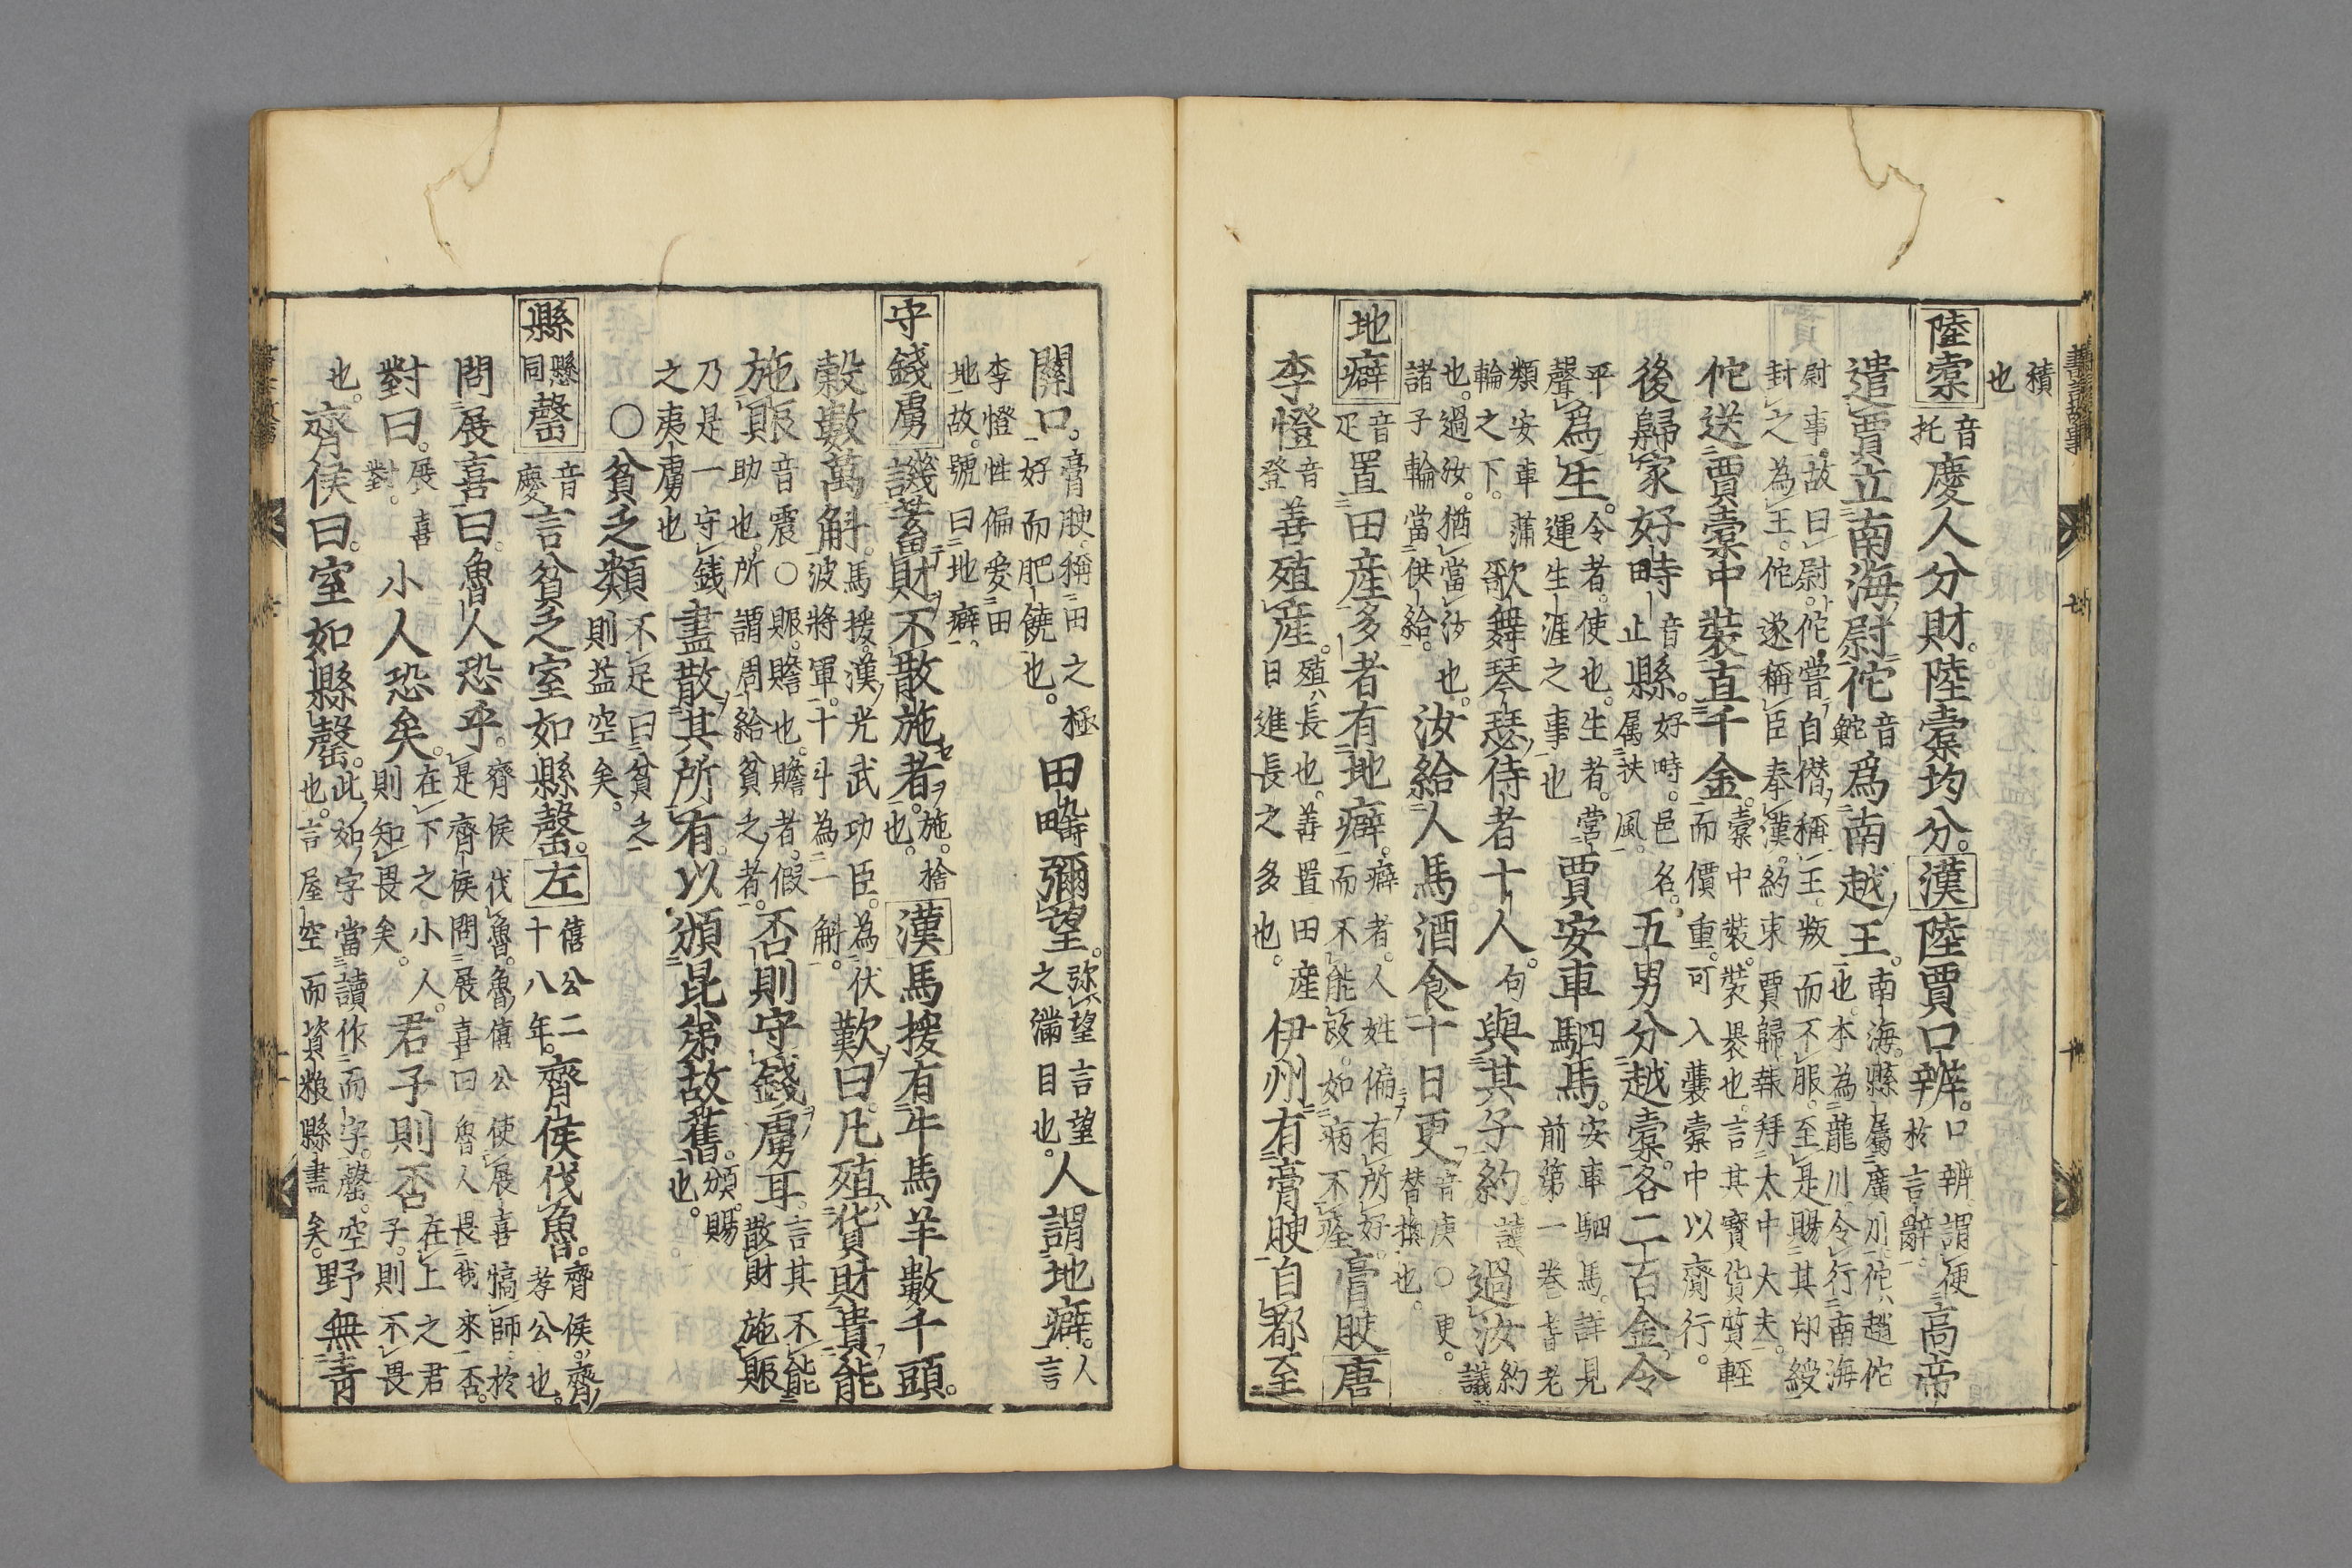 積也
陸橐音托慶人分財。陸橐均分。漢陸賈口辨。口辨謂便於言辭高帝
遣賈立南海尉佗音鮀為南越王。南海。縣屬廣州佗趙佗也。本為龍川令行南海
尉事。故曰尉。佗嘗自僭稱王。叛而不服。至是賜其印綬封之為王。佗遂稱臣奉漢約束賈歸報拜太中大夫。
佗送賈橐中裝直千金。橐中裝。裝褁也。言其寶貨質輕而價重。可入囊橐中以齎行。
後歸家好畤音止縣。好畤。邑名。属扶風。五男分越橐。各二百金。令
平聲為生。令者。使也。生者。営運生涯之事也賈安車駟馬。安車駟馬。詳見前第一巻耆老
類安車蒲輪之下。歌舞琴瑟侍者十人。句與其子約。過汝約議
也。過汝。猶當汝也。諸子輪當供給。汝給人馬酒食十日更音庚○更。替換也。
地癖音疋置田産多者有地癖。癖者。人姓偏有所好。而不能改。如病不痊膏腴唐
李憕音登善殖産。殖長也。善置田産日進長之多也。伊州有膏腴自都至
關口。膏腴。稱田之極好而肥饒也。田疇彌望。弥望言望之滿目也。人謂地癖。人言
李憕性偏愛田地故。號曰地癖。
守錢虜譏蓄財不散施者。施。捨也。漢馬援有牛馬羊數千頭。
穀數萬斛。馬援。漢光武功臣。為伏波將軍。十斗為一斛。歎曰。凡殖貨財貴能
施賑音震○賑。贍也。贍者。假助也。所謂周給貧之者。否則守錢虜耳。言其不能散財施賑
乃是一守銭之夷虜也盡散其所有。以頒昆弟故舊。頒。賜也。
○貧乏類不足曰貧之則益空矣。
縣懸同罄音慶言貧乏室如縣罄。左僖公二十八年。齊侯伐魯。齊侯。齊孝公也。
問展喜曰。魯人恐乎。齊侯伐魯。魯僖公使展喜犒師。於是齊侯問展喜曰魯人畏我來否。
對曰。展喜對。小人恐矣。在下之小人。則知畏矣。君子則否在上之君子。則不畏
也。齊侯曰。室如縣罄。此如字當讀作而字。罄。空也。言屋空而資粮縣盡矣。野無青